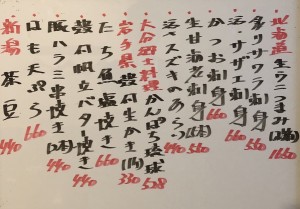 北海道生ウニつまみ(1舟) 1650
多リサワラ刺身 660
活・サザエ刺身 660
かつお刺身 550
生甘海老刺身(2本) 440
活スズキのあらい 550
大分郷土料理かんぱち琉球 528
岩手県殻付生かき(1ケ) 330
たち魚塩焼き 660
殻付帆立バター焼き 440
豚バラ三串焼き(2本) 440
はも天ぷら 660
新潟茶豆 440